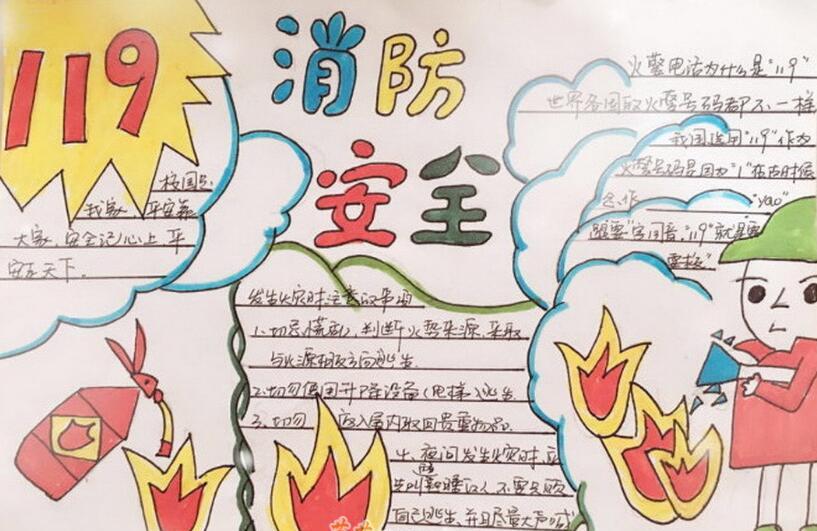 119
消防
安全
校园是
我家,平安靠
大家,安全记心上,平
安天下.
火警电话为什么是"119"
世界各国取火警号码都不一样
我国选用"119"作为
火警号码是因为"1"在古时候
念作"yao"
跟"要"字同音."119"就是要
要救"
发生火灾时注意的事项
1.切忌慌乱,判断火势来源,采取
与火源相反方向逃生.
2.切勿使用升降设备(电梯)逃生
3.切勿 入屋内取回贵重物品.
4.夜间发生火灾时,应
叫醒熟睡的人,不要只顾
自己逃生,并且尽量大声喊